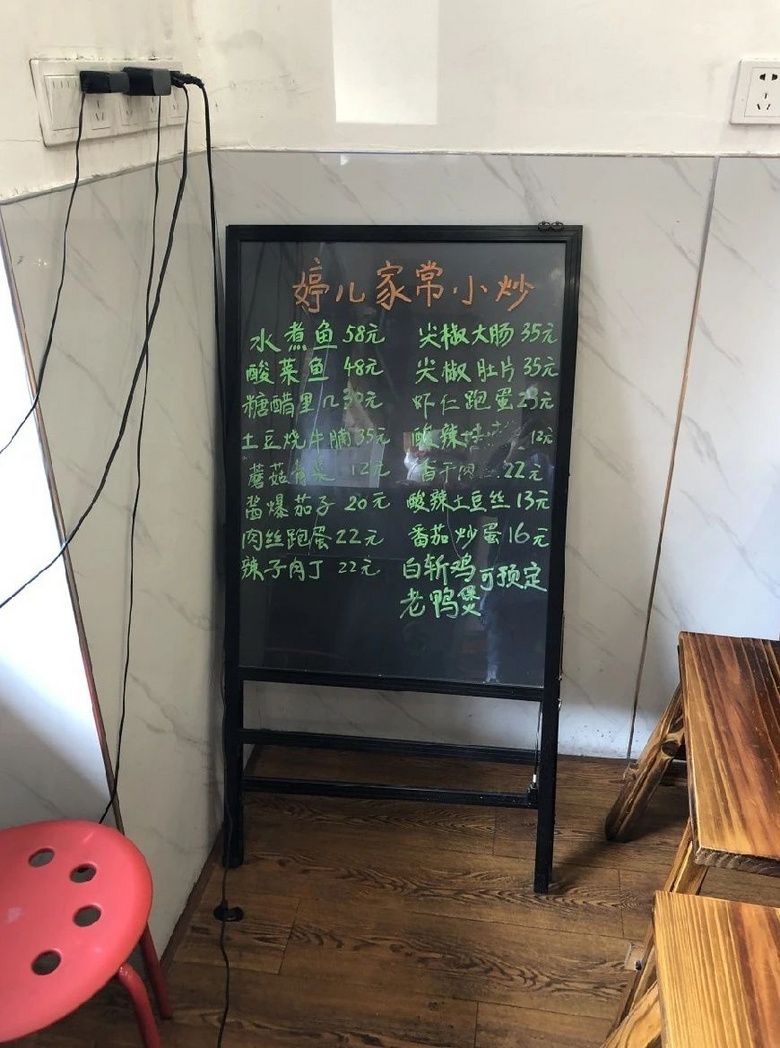 婷儿家常小炒
水煮鱼 58元
酸菜鱼 48元
糖醋里几 30元
土豆烧牛腩 35元
蘑菇青菜 12元
酱爆茄子 20元
肉丝跑蛋 22元
辣子肉丁 22元
尖椒大肠 35元
尖椒肚片 35元
虾仁跑蛋 25元
酸辣 12元
香干肉 22元
酸辣土豆丝 13元
番茄炒蛋 16元
白斩鸡 可预定
老鸭煲